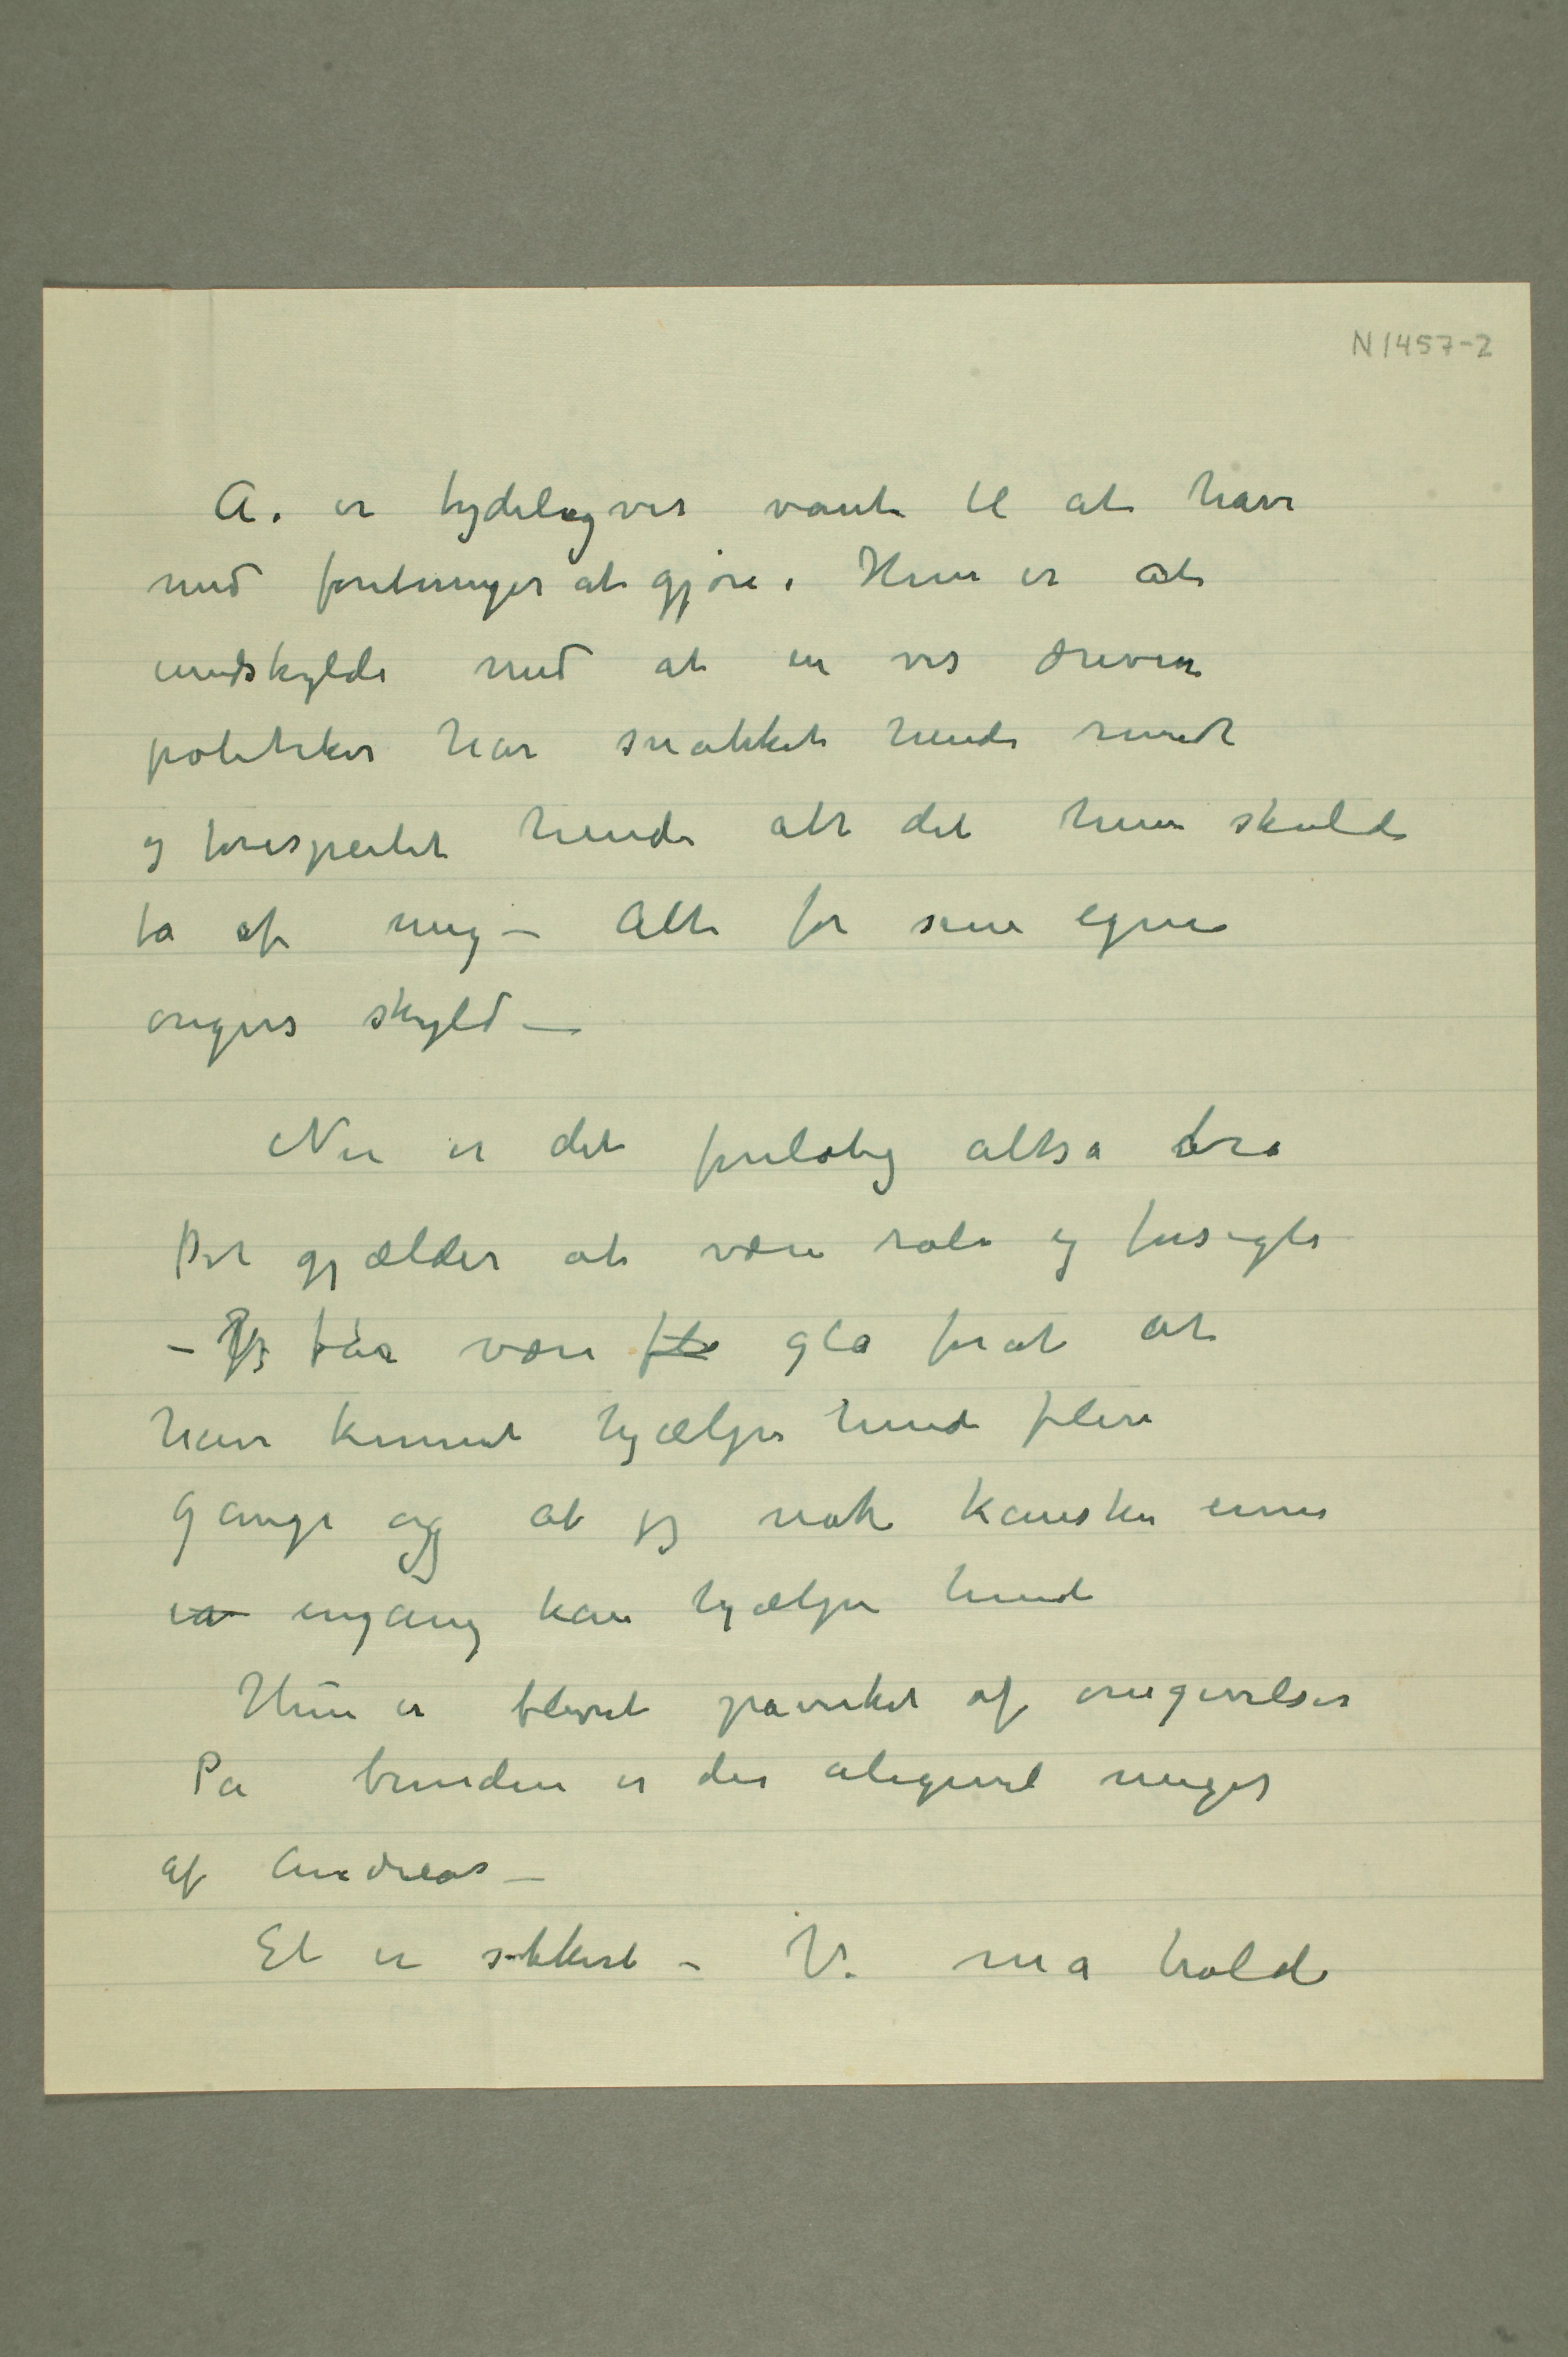 N 1457-2
A. er tydeligvis vant til at have
med forretninger at gjøre. Hun er at
undskylde med at en vis dreven
politiker har snakket hende rundt
og forespeilet hende alt det hun skulde
få af mig – Alt for sine egne
ungers skyld –
Nu er det foreløbig altså bra
Det gjælder at være rolig og forsigtig
– Jeg får være glad for at at
have kunnet hjælpe hende flere
gange og at jeg nok kanske ennu
engang kan hjælpe hende
Hun er blevet påvirket af omgivelser
På bunden er der aligevel meget
af Andreas –
Et er sikkert – Vi må holde